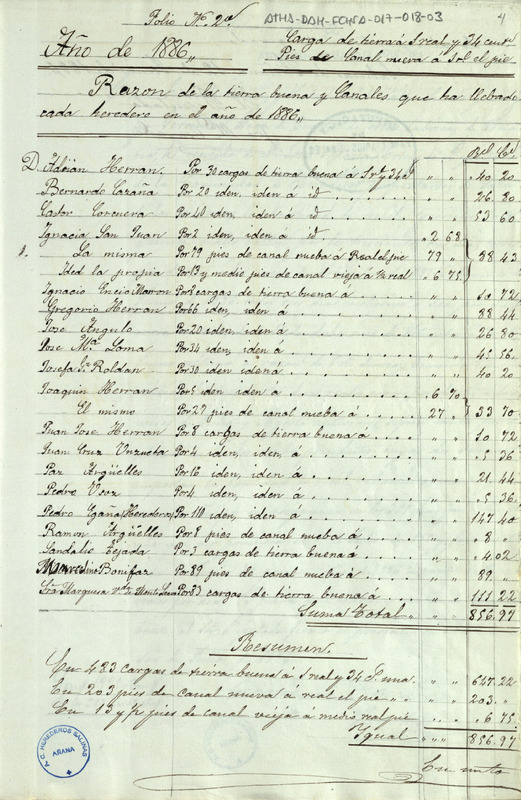 Folio N.º 2º
ATHA-DAH-FCHSA-017-018-03
4
Año de 1886,,
Carga de tierra á 1 real y 34 cent.
Pies de Canal nueva á 1 rl el pie
Razon de la tierra buena y Canales que ha llebado
cada heredero en el año de 1886,,
Rl Cs
D. Adrián Herran. Por 30 cargas de tierra buena á 1 rl y 34 c " " 40 20
Bernardo Cazaña Por 20 iden, iden á id " " 26 80
Castor Corcuera Por 40 iden, iden á id " " 53 60
Ignacia San Juan Por 2 iden, iden á id . 2 68
La misma Por 79 pies de canal nueba á Real el pie 79 " 88 43
Ided la propia Por 13 y medio pies de canal vieja á ½ real . 6 75
Ignacio Encio Marron Por 8 cargas de tierra buena á . . . " " 10 72
Gregorio Herran Por 66 iden, iden á . . . " " 88 44
Jose Angulo Por 20 iden, iden á . . . " " 26 80
Jose Mª Loma Por 34 iden, iden á . . . " " 45 56
Josefa Roldan Por 30 iden iden á . . . " " 40 20
Joaquin Herran Por 5 iden iden á . . . . 6 70
El mismo Por 27 pies de canal nueba á . . . 27 " 33 70
Juan Jose Herran Por 8 cargas de tierra buena á . . . " " 10 72
Juan Cruz Unzueta Por 4 iden, iden, á . . . " " 5 36
Paz Argüelles Por 16 iden, iden á . . . " " 21 44
Pedro Por 4 iden, iden á . . . " " 5 36
Pedro Egaña (Herederos) Por 110 iden, iden á . . . " " 147 40
Ramon Argüelles Por 8 pies de canal nueba á . . . " " 8 "
Sandalio Tejada Por 3 cargas de tierra buena á . . . " " 4 02
Marcelino Bonifaz Por 89 pies de canal nueba á . . . " " 89 "
Sra Marquesa Vda de Por 83 cargas de tierra buena á . . . " " 111 22
Suma Total " " 856,97
Resumen.
En 483 cargas de tierra buena á 1 real y 34 una. " " 647.22
En 203 pies de canal nueva á real el pie " " 203. "
En 13 y ½ pies de canal vieja á medio real pie . . " 6 75
Igual " " " 856.97
A.C. HEREDEROS SALINAS
AÑANA